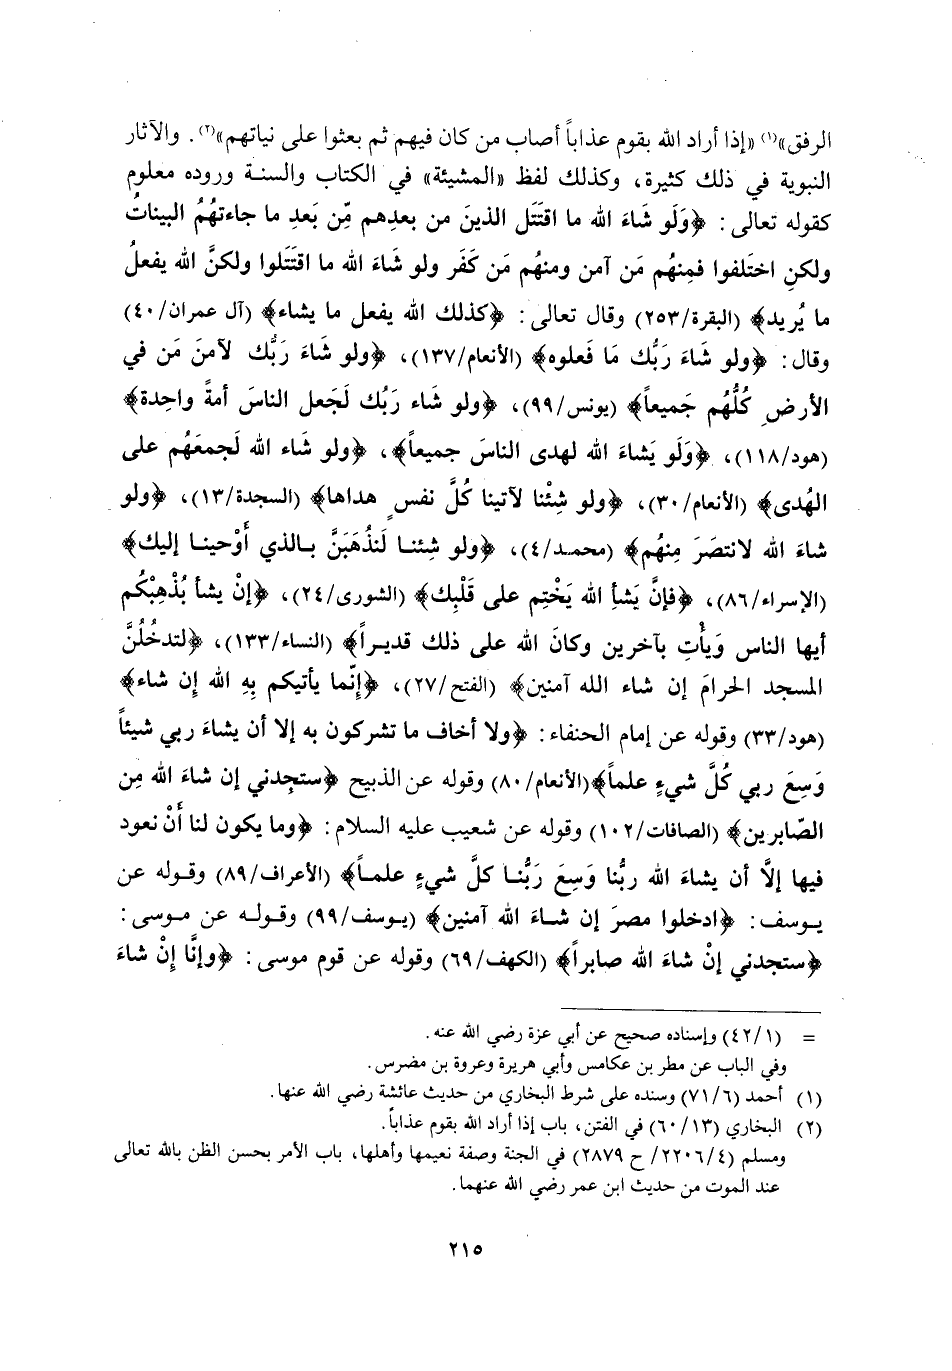 الرفق»(١) «إذا أراد الله بقوم عذاباً أصاب من كان فيهم ثم بعثوا على نياتهم»(٢). والآثار
النبوية في ذلك كثيرة، وكذلك لفظ «المشيئة» في الكتاب والسنة وروده معلوم
كقوله تعالى: ﴿وَلَو شَاءَ الله ما اقتَتَل الذينَ من بعدِهم مِّن بَعدِ ما جاءتهُمُ البيناتُ
ولكنِ اختَلفوا فمِنهُم مَن آمن ومنهُم مَن كَفَر ولو شاءَ الله ما اقتَتَلوا ولكنَّ الله يفعلُ
ما يُريد﴾ (البقرة/٢٥٣) وقال تعالى: ﴿كذلك الله يفعل ما يشاء﴾ (آل عمران/٤٠)
وقال: ﴿ولو شَاءَ رَبُّك مَا فَعلوه﴾ (الأنعام/١٣٧)، ﴿ولو شَاءَ رَبُّك لآمنَ مَن في
الأرضِ كُلُّهُم جَميعاً﴾ (يونس/٩٩)، ﴿ولو شاء رَبُك لَجَعل الناسَ أمةً واحِدة﴾
(هود/١١٨)، ﴿وَلَو يَشاءَ الله لهدى الناسَ جميعاً﴾، ﴿ولو شاء الله لَجمعَهُم على
الهُدى﴾ (الأنعام/٣٠)، ﴿ولو شِئْنا لآتينا كُلَّ نفسٍ هداها﴾ (السجدة/١٣)، ﴿ولو
شاءَ الله لانتصَرَ مِنهُم﴾ (محمد/٤)، ﴿ولو شِئنا لَنذْهَبَنَّ بالذي أَوْحينا إليك﴾
(الإسراء/٨٦)، ﴿فإنَّ يَشأِ الله يَخْتِم على قَلْبِك﴾ (الشورى/٢٤)، ﴿إنْ يشأ يُذْهِبْكُم
أيها الناس وَيأْتِ بآخرين وكانَ الله على ذلك قديراً﴾ (النساء/١٣٣)، ﴿لتدخُلُنَّ
المسجد الحرامَ إن شاء الله آمنين﴾ (الفتح/٢٧)، ﴿إنّما يأتيكم بِهِ الله إن شاء﴾
(هود/٣٣) وقوله عن إمام الحنفاء: ﴿ولا أخاف ما تشركون به إلا أن يشاءَ ربي شيئاً
وَسِعَ ربي كُلَّ شيءٍ علماً﴾(الأنعام/٨٠) وقوله عن الذبيح ﴿ستجِدني إن شاءَ الله مِن
الصّابرين﴾ (الصافات/١٠٢) وقوله عن شعيب عليه السلام: ﴿وما يكون لنا أنْ نعود
فيها إلاَّ أن يشاءَ الله ربُّنا وَسِعَ رَبُّنا كلَّ شيءٍ علماً﴾ (الأعراف/٨٩) وقوله عن
يوسف: ﴿ادخلوا مصرَ إن شاءَ الله آمنين﴾ (يوسف/٩٩) وقوله عن موسى:
﴿ستجدني إنْ شاءَ الله صابراً﴾ (الكهف/٦٩) وقوله عن قوم موسى: ﴿وإنَّا إنْ شاءَ
= (٤٢/١) وإسناده صحيح عن أبي عزة رضي الله عنه.
وفي الباب عن مطر بن عكامس وأبي هريرة وعروة بن مضرس.
(١) أحمد (٧١/٦) وسنده على شرط البخاري من حديث عائشة رضي الله عنها.
(٢) البخاري (٦٠/١٣) في الفتن، باب إذا أراد الله بقوم عذاباً.
ومسلم (٢٢٠٦/٤/ ح ٢٨٧٩) في الجنة وصفة نعيمها وأهلها، باب الأمر بحسن الظن بالله تعالى
عند الموت من حديث ابن عمر رضي الله عنهما.
٢١٥